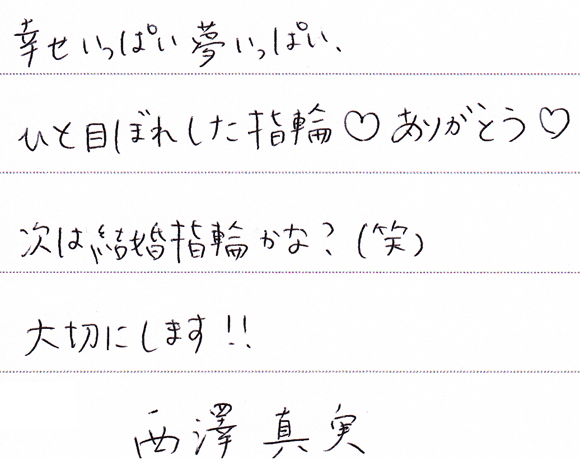 幸せいっぱい夢いっぱい、
ひと目ぼれした指輪♡ありがとう♡
次は結婚指輪かな?(笑)
大切にします!!
西澤 真実